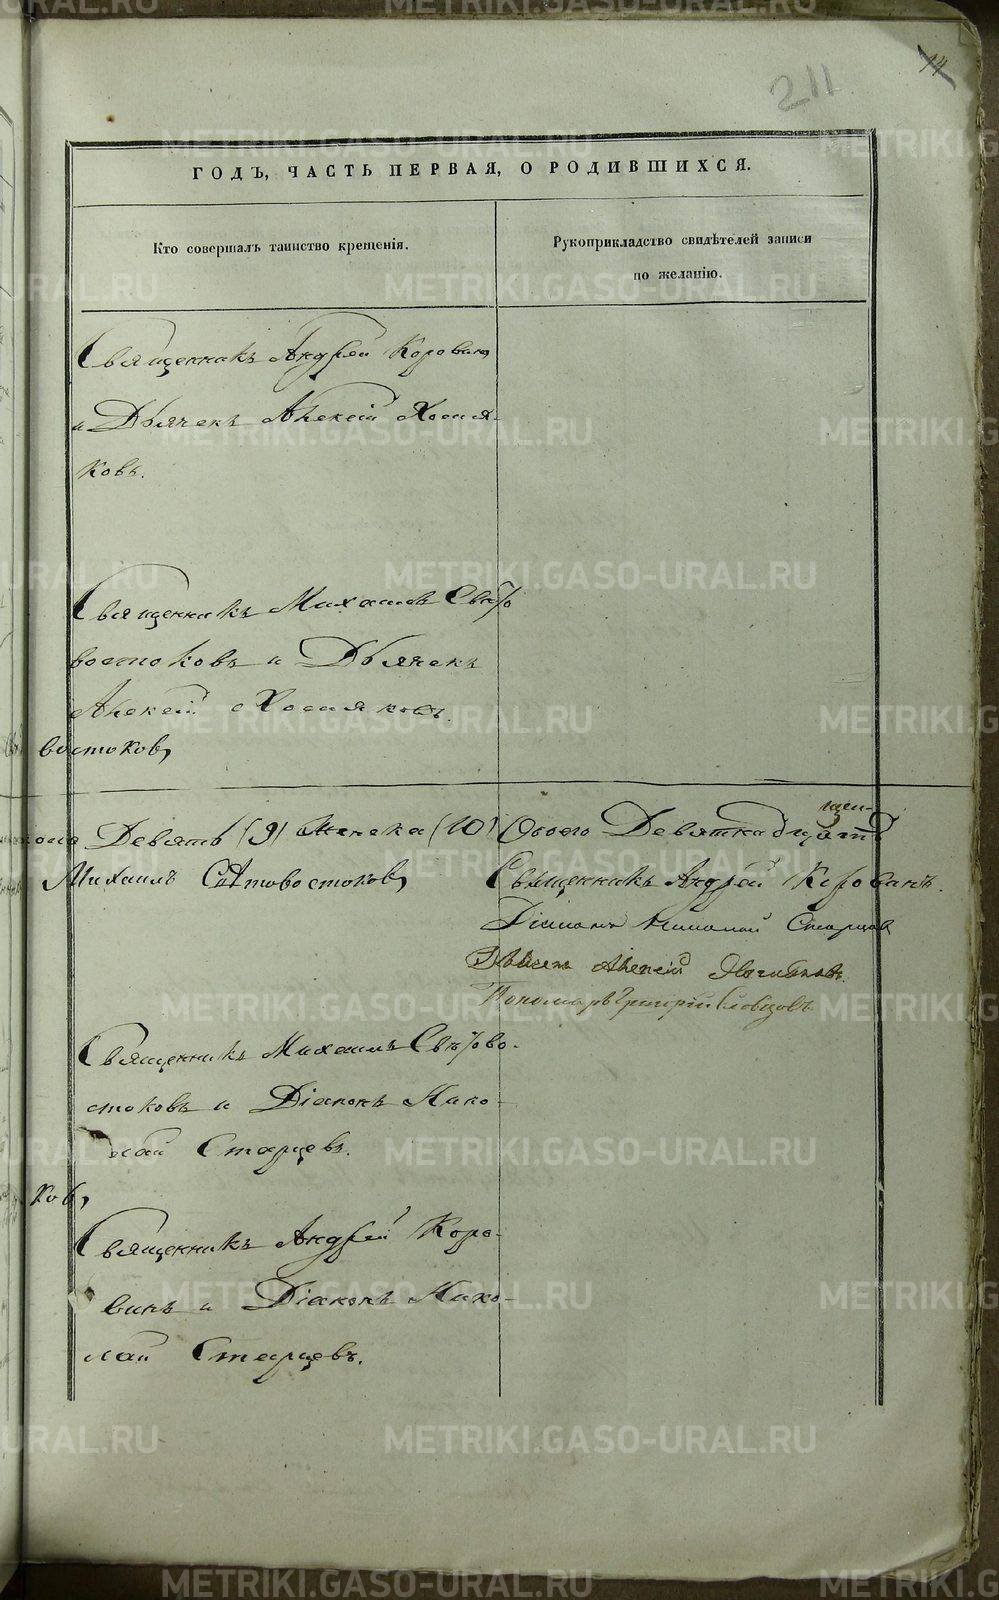 14
211
ГОДЪ, ЧАСТЬ ПЕРВАЯ, О РОДИВШИХСЯ.
Кто совершалъ таинство крещенія.
Рукоприкладство свидѣтелей записи
по желанію.
Священникъ Андрей Коровинъ
и Дьячекъ Алексій Хомя-
ковъ.
Священникъ Михаилъ Свѣто
востоковъ и Дьячекъ
Алексій Хомяковъ.
востоковъ,
Девять (9) Женска (10) Обоего Девятнадцать
Михаилъ Свѣтовостоковъ,
Священникъ Андрей Коровинъ.
Діаконъ Николай Старцев
Дьячекъ Алексій
Пономарь Григорій
Священникъ Михаилъ Свѣтово-
стоковъ и Діаконъ Нико-
лай Старцевъ.
ков,
Священникъ Андрей Коро-
винъ и Діаконъ Нико-
лай Старцевъ.
METRIKI.GASO-URAL.RU